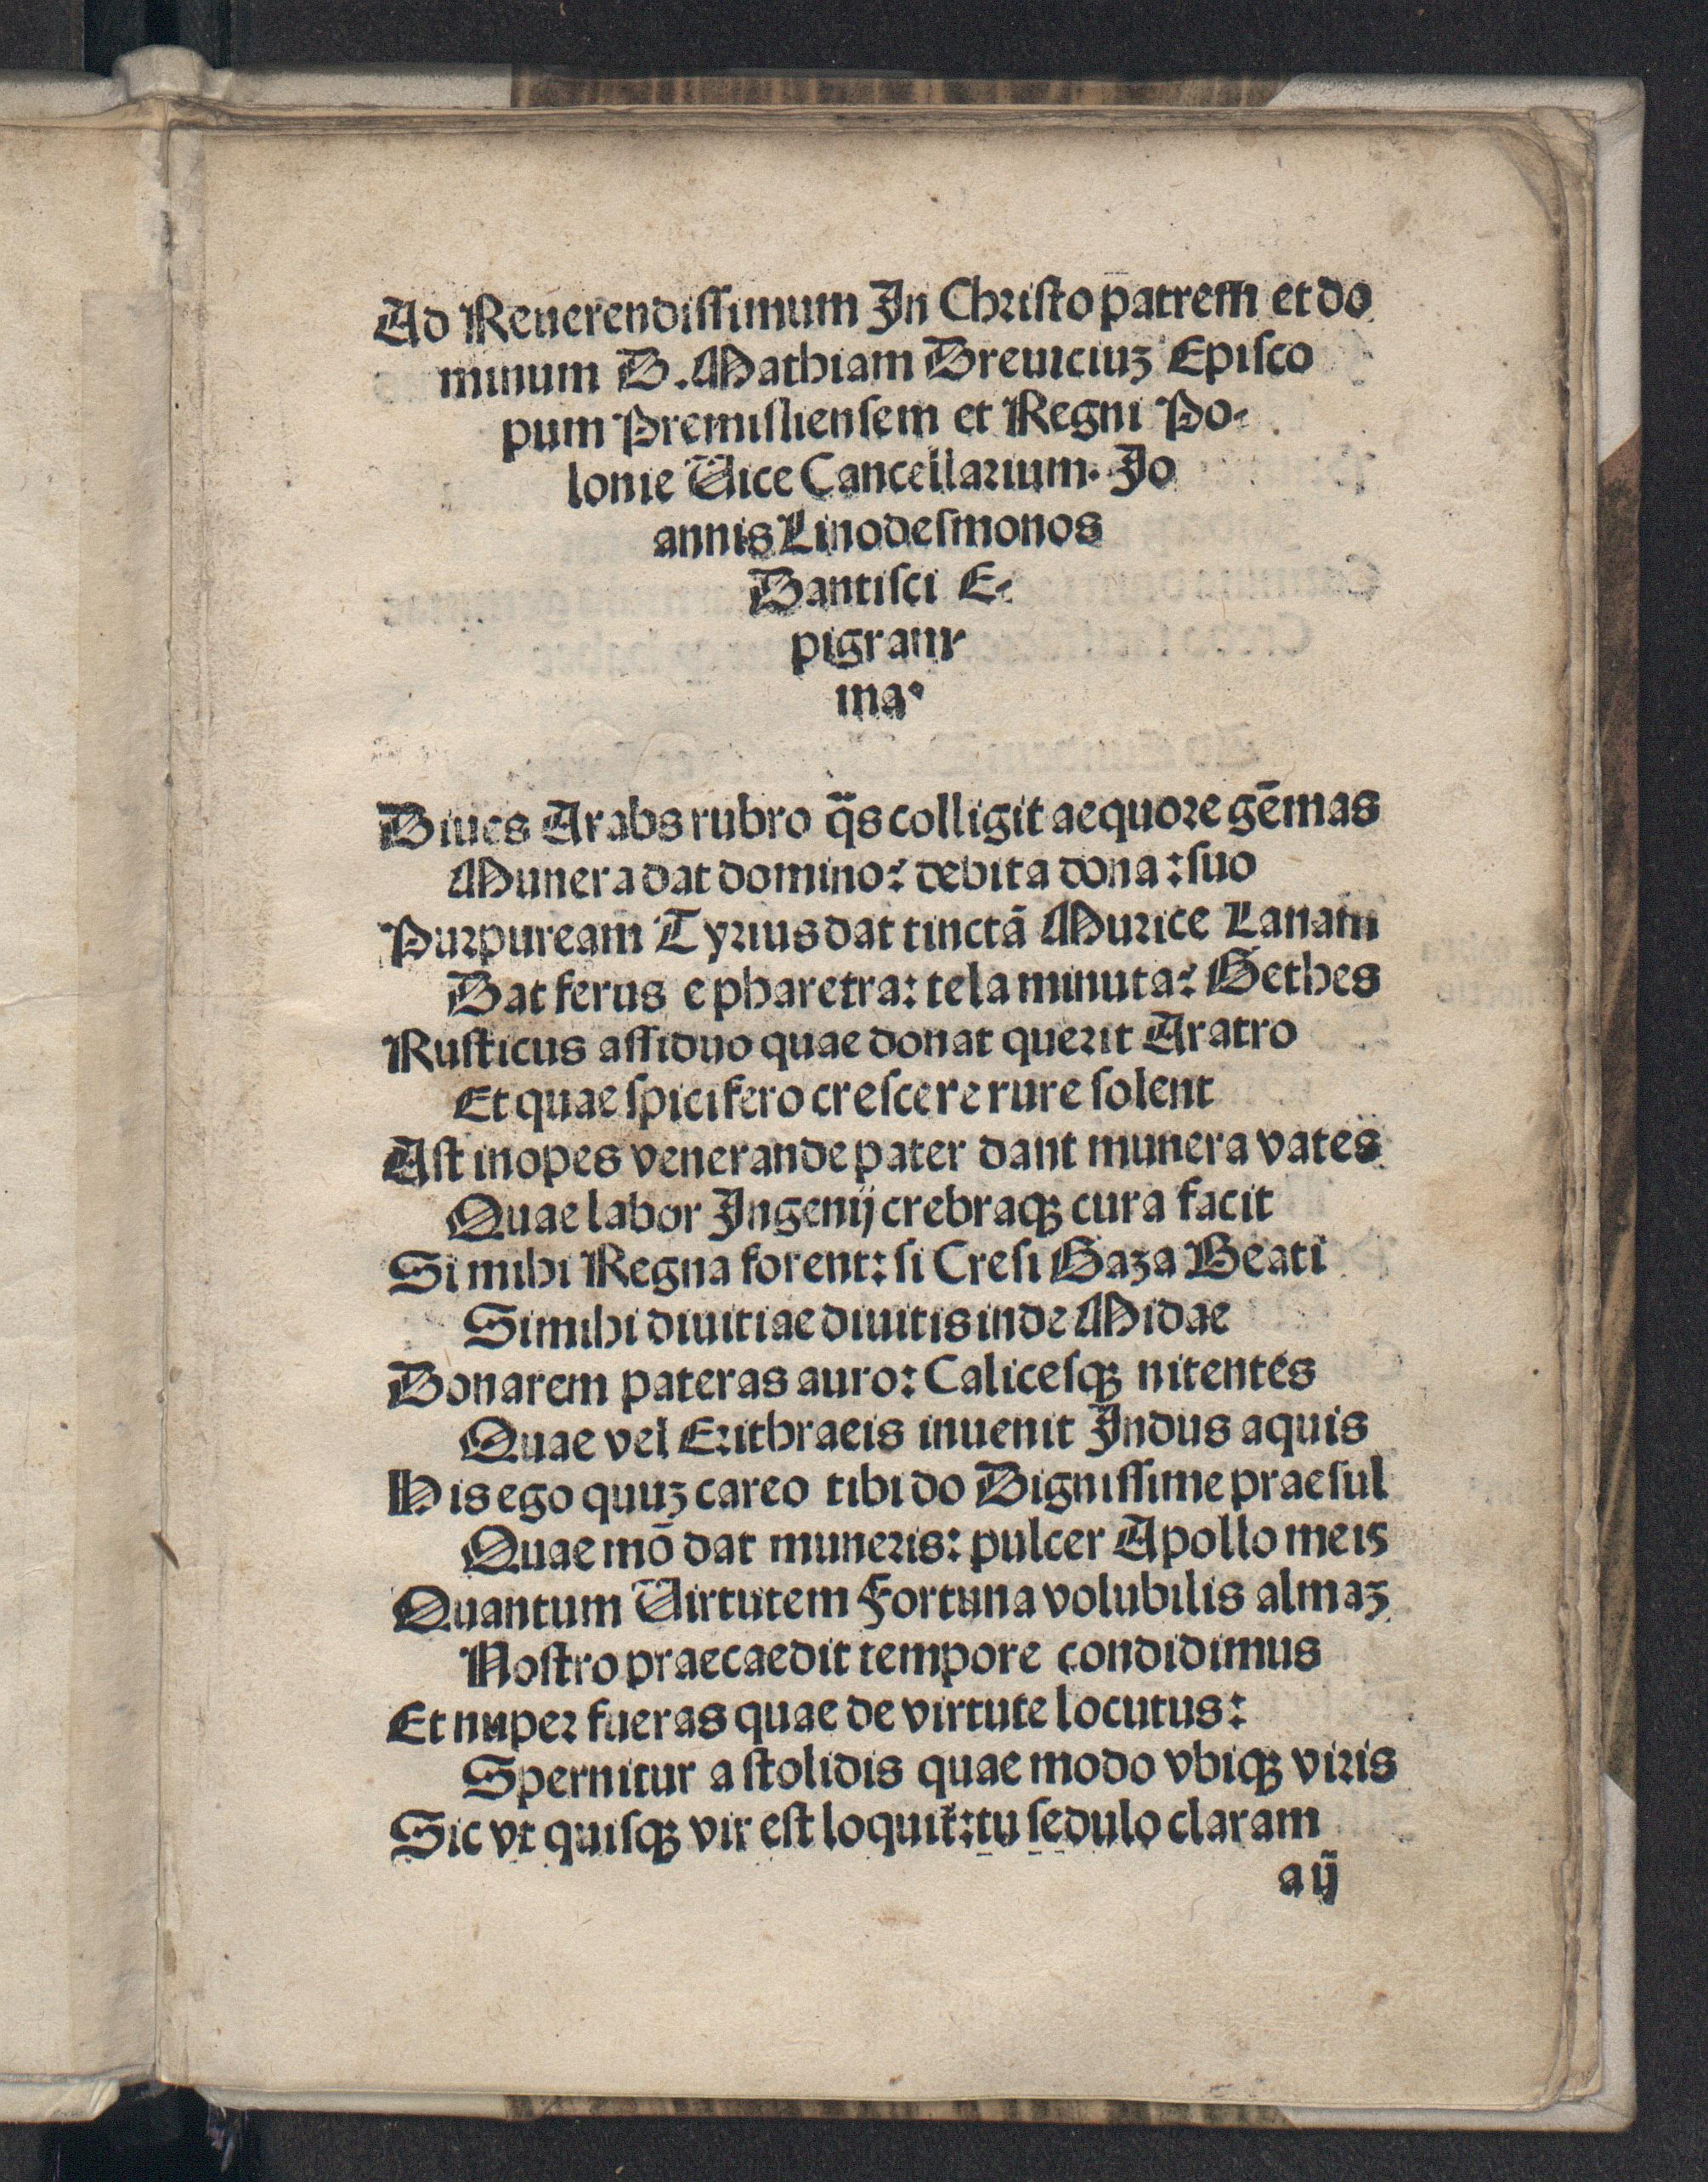 Ad Reuerendiſſimum In Chriſto patrem et do
minum D. Mathiam Dreuiciuꝫ Epiſco
pum Premiſlienſem et Regni Po-
lonie Vice Cancellarium. Jo
annis Linodeſmonos
Dantiſci E-
pigram-
ma.
Diues Arabs rubro q̄s colligit aequore gēmas
Munera dat domino: debita dona: ſuo
Purpuream Tyrius dat tinctā Murice Lanam
Dat ferus e pharetra: tela minuta: Gethes
Ruſticus aſſiduo quae donat querit Aratro
Et quae ſpicifero creſcere rure ſolent
Aſt inopes venerande pater dant munera vates
Quae labor Ingenij crebraqꝫ cura facit
Si mihi Regna forent: ſi Creſi Gaza Beati
Si mihi diuitiae diuitis inde Midae
Donarem pateras auro: Caliceſqꝫ nitentes
Quae vel Erithraeis inuenit Indus aquis
His ego quuꝫ careo tibi do Digniſſime praeſul
Quae mō dat muneris: pulcer Apollo meis
Quantum Virtutem Fortuna volubilis almaꝫ
Noſtro praecaedit tempore condidimus
Et nuper fueras quae de virtute locutus:
Spernitur a ſtolidis quae modo vbiqꝫ viris
Sic vt quiſqꝫ vir eſt loquit̄: tu ſedulo claram
a ij